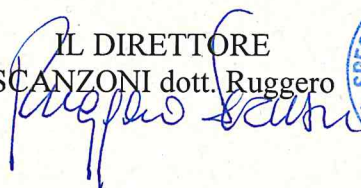 IL DIRETTORE
SCANZONI dott. Ruggero
Ruggero Scanzoni